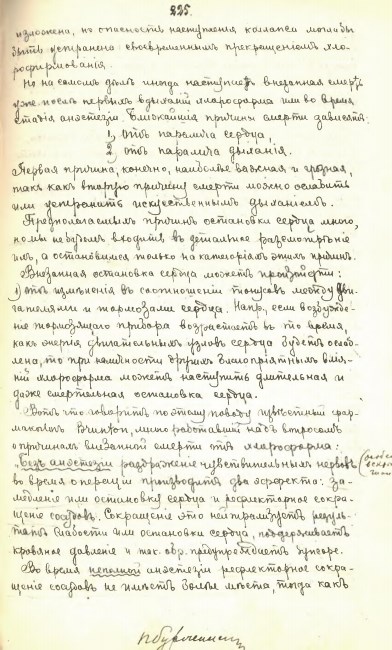 225.
изложена, но опасность наступления коллапса могла бы
быть устранена своевременным прекращением хло-
роформирования.
Но на самом деле иногда наступает внезапная смерть
уже после первых вдыханий хлороформа или во время
стадии анэстезии. Ближайшия причины смерти зависят:
1) отъ паралича сердца,
2) отъ паралича дыхания.
Первая причина, конечно, наиболее важная и грозная,
такъ какъ вторую причину смерти можно ослабить
или устранить искусственнымъ дыханиемъ.
Предполагаемыхъ причинъ остановки сердца много,
но мы не будемъ входить въ детальное разсмотрение
ихъ, а остановимся только на категорияхъ этихъ причинъ.
Внезапная остановка сердца можетъ произойти:
1) отъ изменения въ соотношении тонусовъ между дви-
гателями и тормозами сердца. Напр., если возбужде-
ние тормозящаго прибора возрастаетъ въ то время,
какъ энергия двигательныхъ узловъ сердца будетъ ослаб-
лена, то при наличности другихъ благоприятныхъ влия-
ний хлороформа можетъ наступить длительная и
даже смертельная остановка сердца.
Вотъ что говоритъ по этому поводу известный фар-
макологъ Brunton, много работавший надъ вопросомъ
о причинахъ внезапной смерти отъ хлороформа:
"Безъ анэстезии раздражение чувствительныхъ нервовъ
во время операции производитъ два эффекта: за-
медление или остановку сердца и рефлекторное сокра-
щение сосудовъ. Сокращение это нейтрализуетъ резуль-
татъ слабости или остановки сердца, поддерживаетъ
кровяное давление и так. обр. предупреждаетъ
Во время неполной анэстезии рефлекторное сокра-
щение сосудовъ не имеетъ более места, тогда какъ